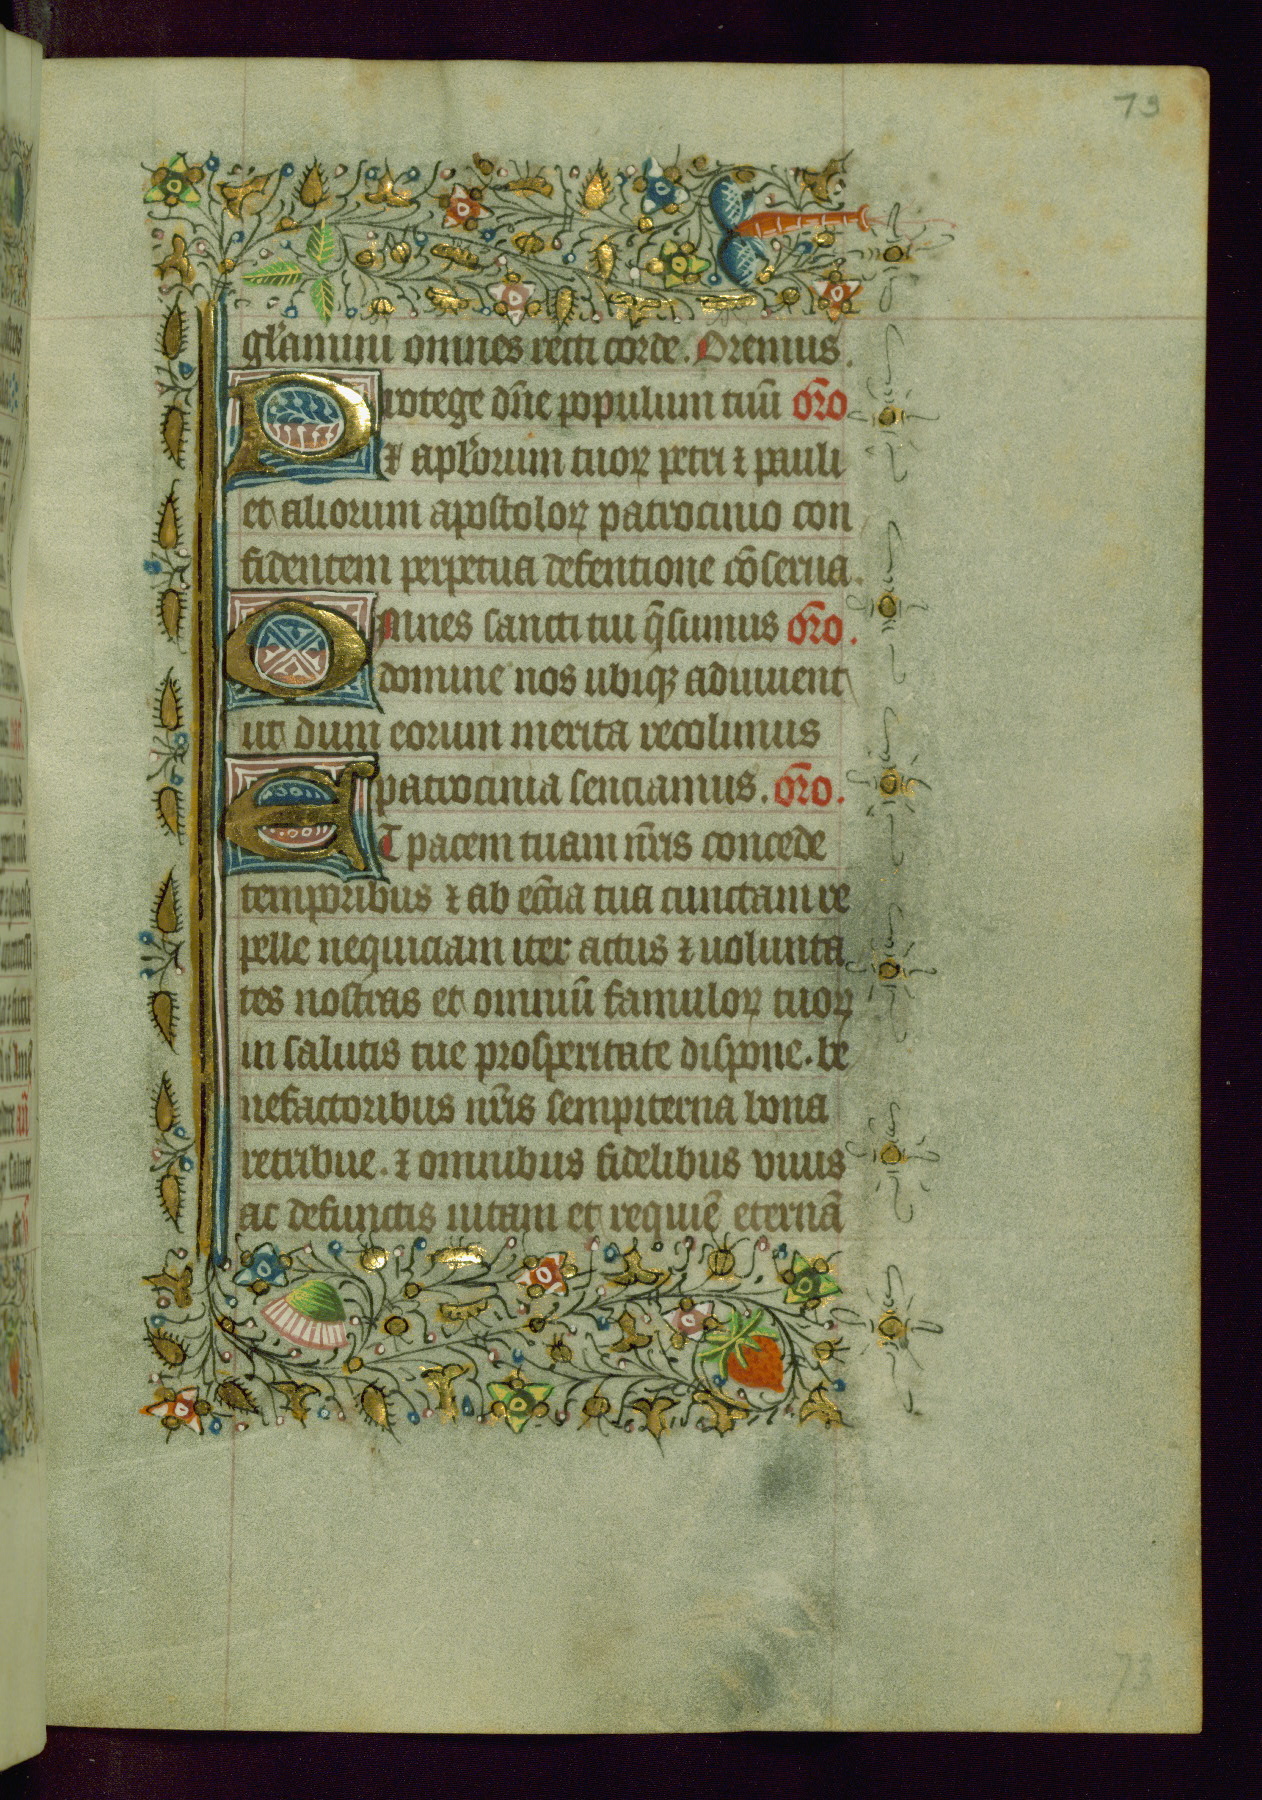 73
gl'amini om̄nes recti corde. Oremus.
Protege dn̄e populum tuū or̄o
⁊ apl'orum tuoꝝ petri ⁊ pauli
et aliorum apostoloꝝ patrocinio con
fidentem perpetua defentione cōserua.
OMnes sancti tui q̄sumus or̄o.
domine nos ubiqꝫ adiuuent
ut dum eorum merita recolimus
patrocinia senciamus. or̄o.
ET pacem tuam nr̄is concede
temporibus ⁊ ab ecc̄ia tua cunctam re
pelle nequiciam iter actus ⁊ uolunta
tes nostras et omniū famuloꝝ tuoꝝ
in salutis tue prosperitate dispone. be
nefactoribus nr̄is sempiterna bona
retribue. ⁊ omnibus fidelibus viuis
ac defunctis uitam et requiē eternā
73